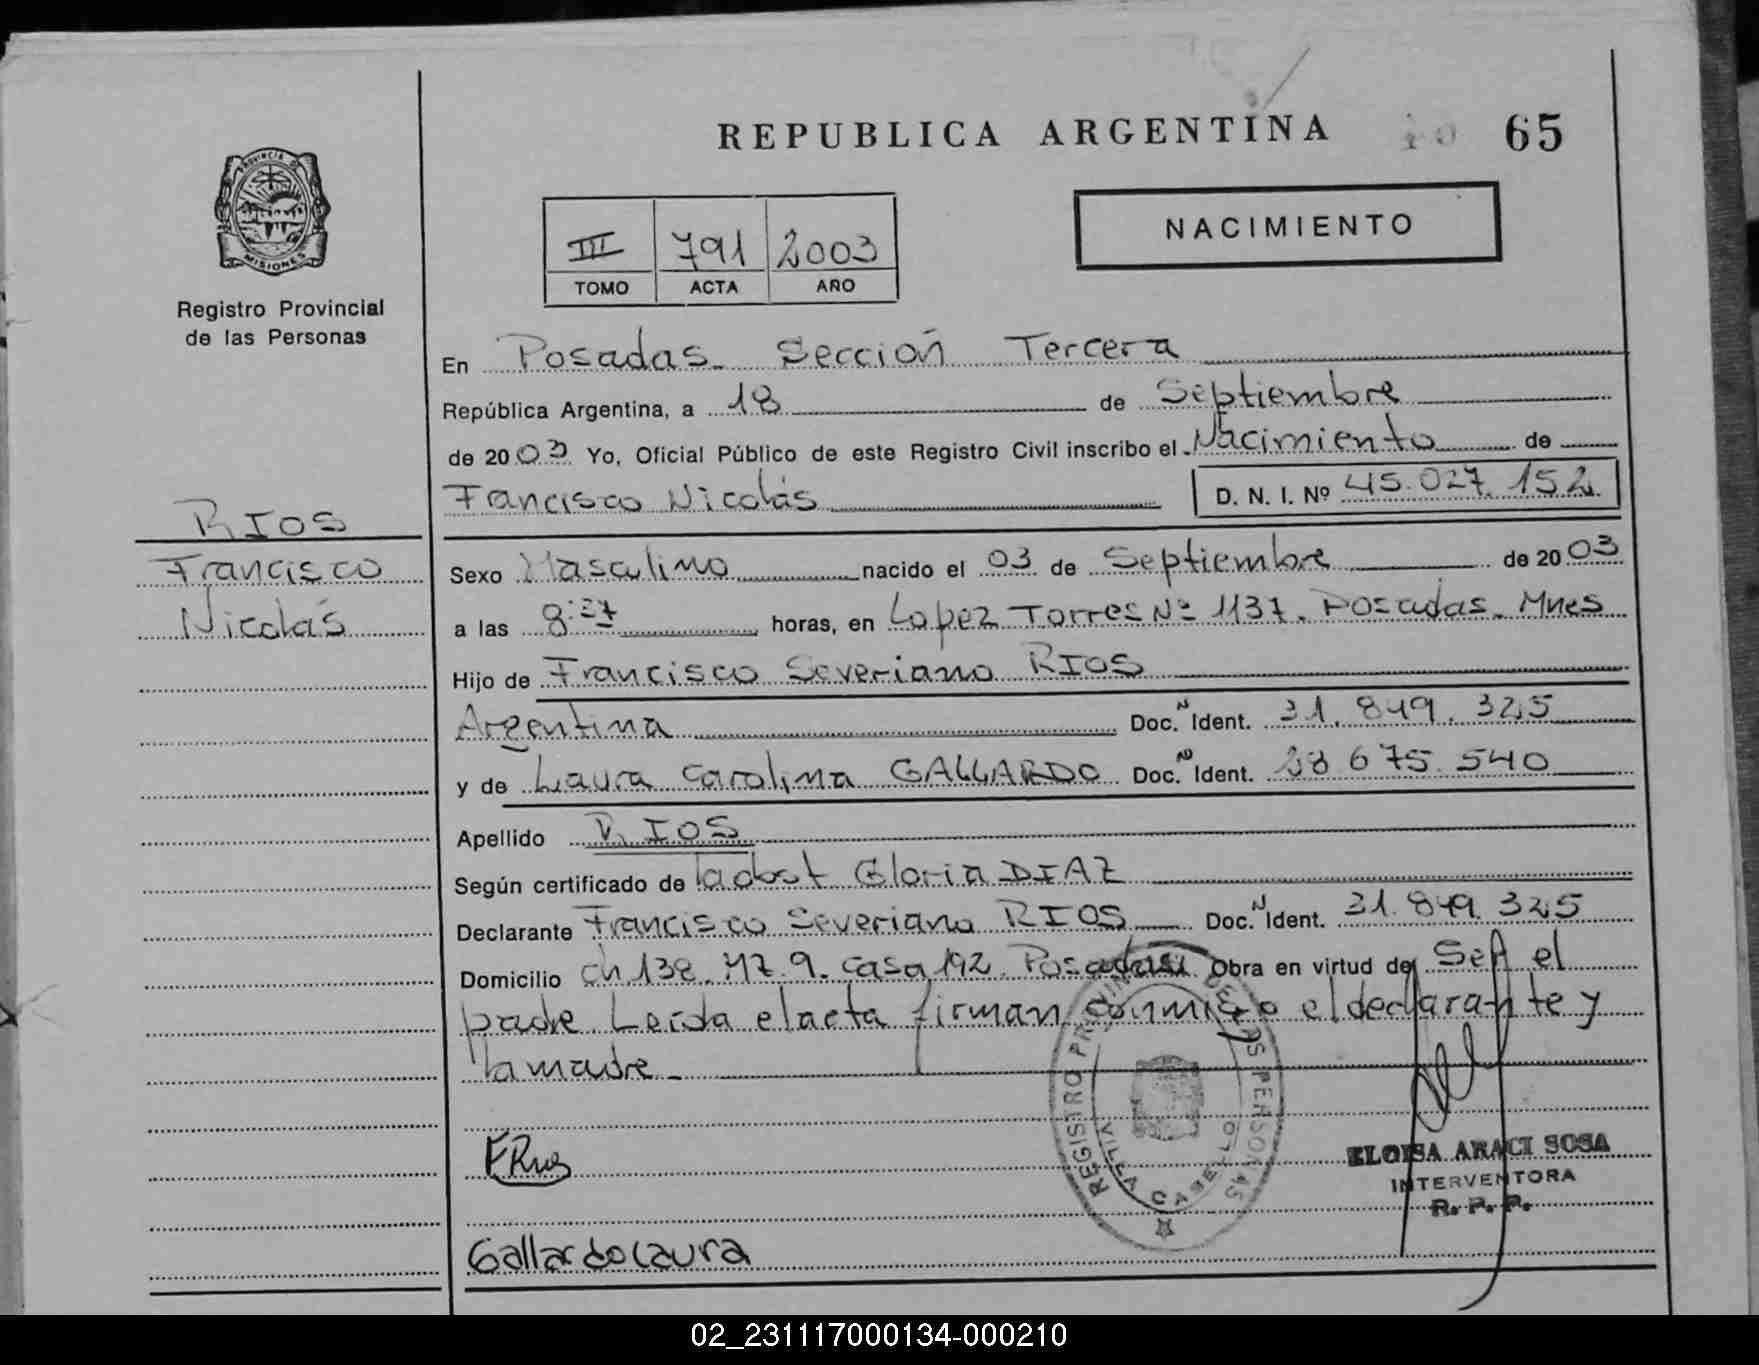 REPUBLICA ARGENTINA 65
PROVINCIA DE
MISIONES
Registro Provincial
de las Personas
III 791 2003
TOMO ACTA AÑO
NACIMIENTO
En Posadas Sección Tercera
República Argentina, a 18 de Septiembre
de 2003 Yo, Oficial Público de este Registro Civil inscribo el Nacimiento de
Francisco Nicolás D. N. I. Nº 45.027.152
RIOS
Francisco
Nicolás
Sexo Masculino nacido el 03 de Septiembre de 2003
a las 8:27 horas, en Lopez Torres Nº 1137. Posadas. Mnes
Hijo de Francisco Severiano RIOS
Argentina Doc. N Ident. 31.849.325
y de Laura Carolina GALLARDO Doc. N Ident. 675.540
Apellido RIOS
Según certificado de la obst Gloria DIAZ
Declarante Francisco Severiano RIOS Doc. N Ident. 31.849.325
Domicilio ch 138. MZ 9. casa 192. Posadas Obra en virtud de Ser el
padre Leida el acta firman conmigo el declarante y
la madre
REGISTRO PROVINCIAL DE LAS PERSONAS
VILLA CABELLO
FRios
ELOISA ARACI SOSA
INTERVENTORA
R. P. P.
Gallardo Laura
02_231117000134-000210